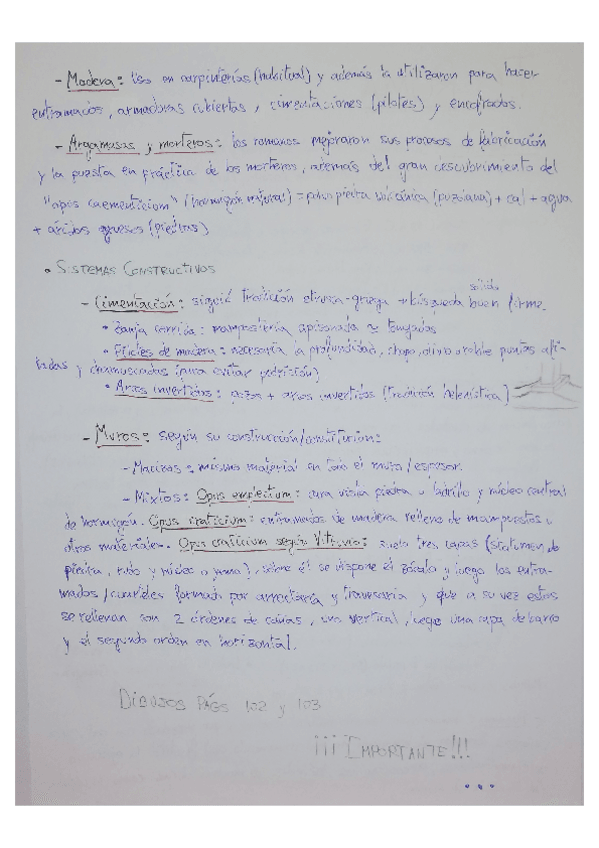 - Madera: Uso en carpinterías (habitual) y además la utilizaron para hacer
entramados, armaduras cubiertas, cimentaciones (pilotes) y encofrados.
- Argamasas y morteros: los romanos mejoraron sus procesos de fabricación
y la puesta en práctica de los morteros, además del gran descubrimiento del
"opus caementicium" (hormigón natural) = polvo piedra volcánica (puzolana) + cal + agua
+ áridos gruesos (piedras)
• SISTEMAS CONSTRUCTIVOS
- Cimentación: siguió tradición etrusca-griega → búsqueda buen firme
sólido
• Zanja corrida: mampostería apisonada
• Pilotes de madera: necesaria la profundidad, chopo, olivo o roble puntas afi-
ladas y chamuscadas (para evitar pudrición)
• Arcos invertidos: pozos + arcos invertidos (tradición helenística)
- Muros: según su construcción/constitución:
- Macizos: mismo material en todo el muro/espesor.
- Mixtos: Opus emplectum: cara vista piedra o ladrillo y núcleo central
de hormigón. Opus craticium: entramados de madera relleno de mampuestos u
otros materiales. Opus craticium según Vitruvio: suelo tres capas (statumen de
piedra, rudo y núcleo o yeso), sobre él se dispone el zócalo y luego los entra-
mados/ formados por arrectaria y transversaria y que a su vez estos
se rellenan con 2 órdenes de cañas, uno vertical, luego una capa de barro
y el segundo orden en horizontal.
DIBUJOS PÁGS 102 y 103
¡¡¡IMPORTANTE!!!
...